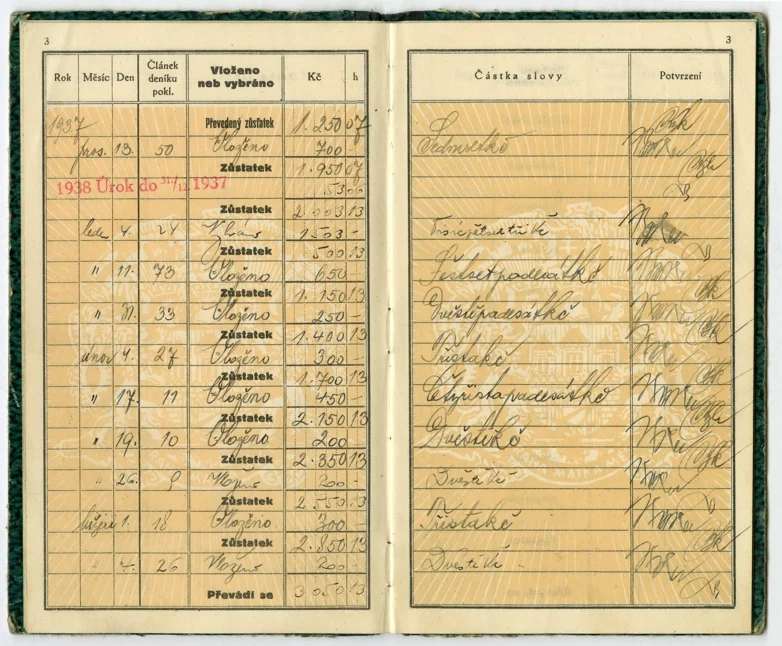 3
3
Rok Měsíc Den Článek deníku pokl. Vloženo neb vybráno Kč h Částka slovy Potvrzení
1937 Převedený zůstatek 1.250 07
pros. 13. 50 Vloženo 700 - Sedmsetkč
Zůstatek 1.950 07
1938 Úrok do 31/12 1937 53 06
Zůstatek 2 003 13
led. 4. 24 1503 -
Zůstatek 500 13
" 11. 73 Vloženo 650 - Šestsetpadesátkč
Zůstatek 1.150 13
" 31. 33 Vloženo 250 - Dvěstěpadesátkč
Zůstatek 1.400 13
únor 4. 27 Vloženo 300 - Třistakč
Zůstatek 1.700 13
" 17. 11 Vloženo 450 - Čtyřistapadesátkč
Zůstatek 2.150 13
" 19. 10 Vloženo 200 Dvěstěkč
Zůstatek 2.350 13
" 26. 9 200 - Dvěstě Kč
Zůstatek 2.550 13
1. 18 Vloženo 300 - Třistakč
Zůstatek 2.850 13
" 4. 26 Vloženo 200 - Dvěstě Kč -
Převádí se 3 050 13